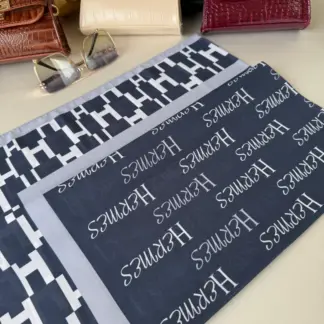 HERMES HERMES HERMES
HERMES HERMES HERMES HERMES
HERMES HERMES HERMES HERMES
HERMES HERMES HERMES
HERMES HERMES